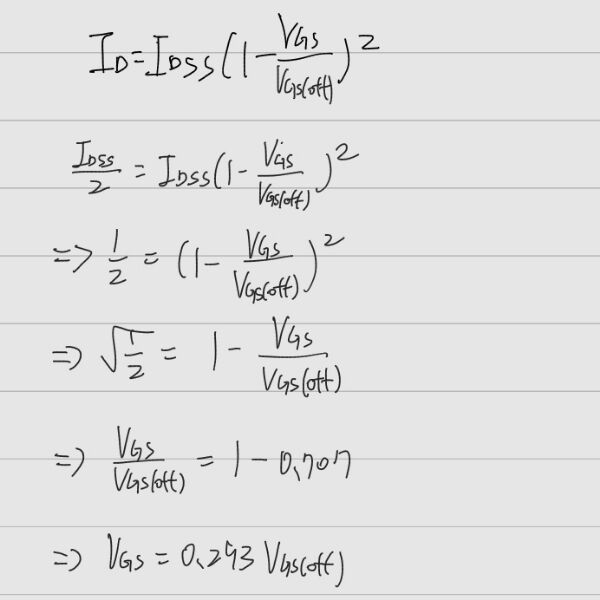 I_D=I_DSS(1-V_GS/V_GS(off))^2
I_DSS/2 = I_DSS(1-V_GS/V_GS(off))^2
=> 1/2 = (1-V_GS/V_GS(off))^2
=> √(1/2) = 1-V_GS/V_GS(off)
=> V_GS/V_GS(off) = 1-0.707
=> V_GS = 0.293 V_GS(off)